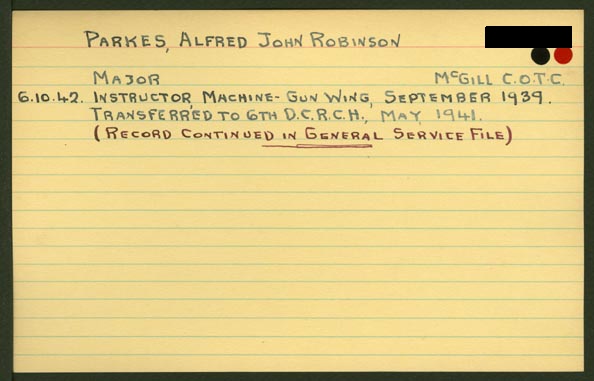 PARKES, ALFRED JOHN ROBINSON
MAJOR McGILL C.O.T.C.
6.10.42. INSTRUCTOR, MACHINE-GUN WING, SEPTEMBER 1939.
TRANSFERRED TO 6TH D.C.R.C.H., MAY, 1941.
(RECORD CONTINUED IN GENERAL SERVICE FILE)